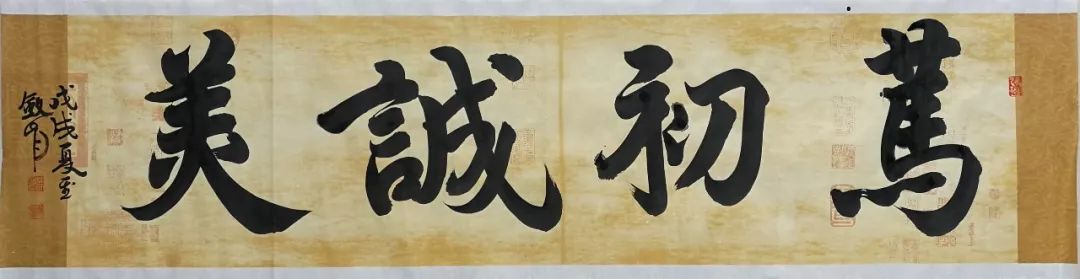 篤初誠美
戊戌夏至